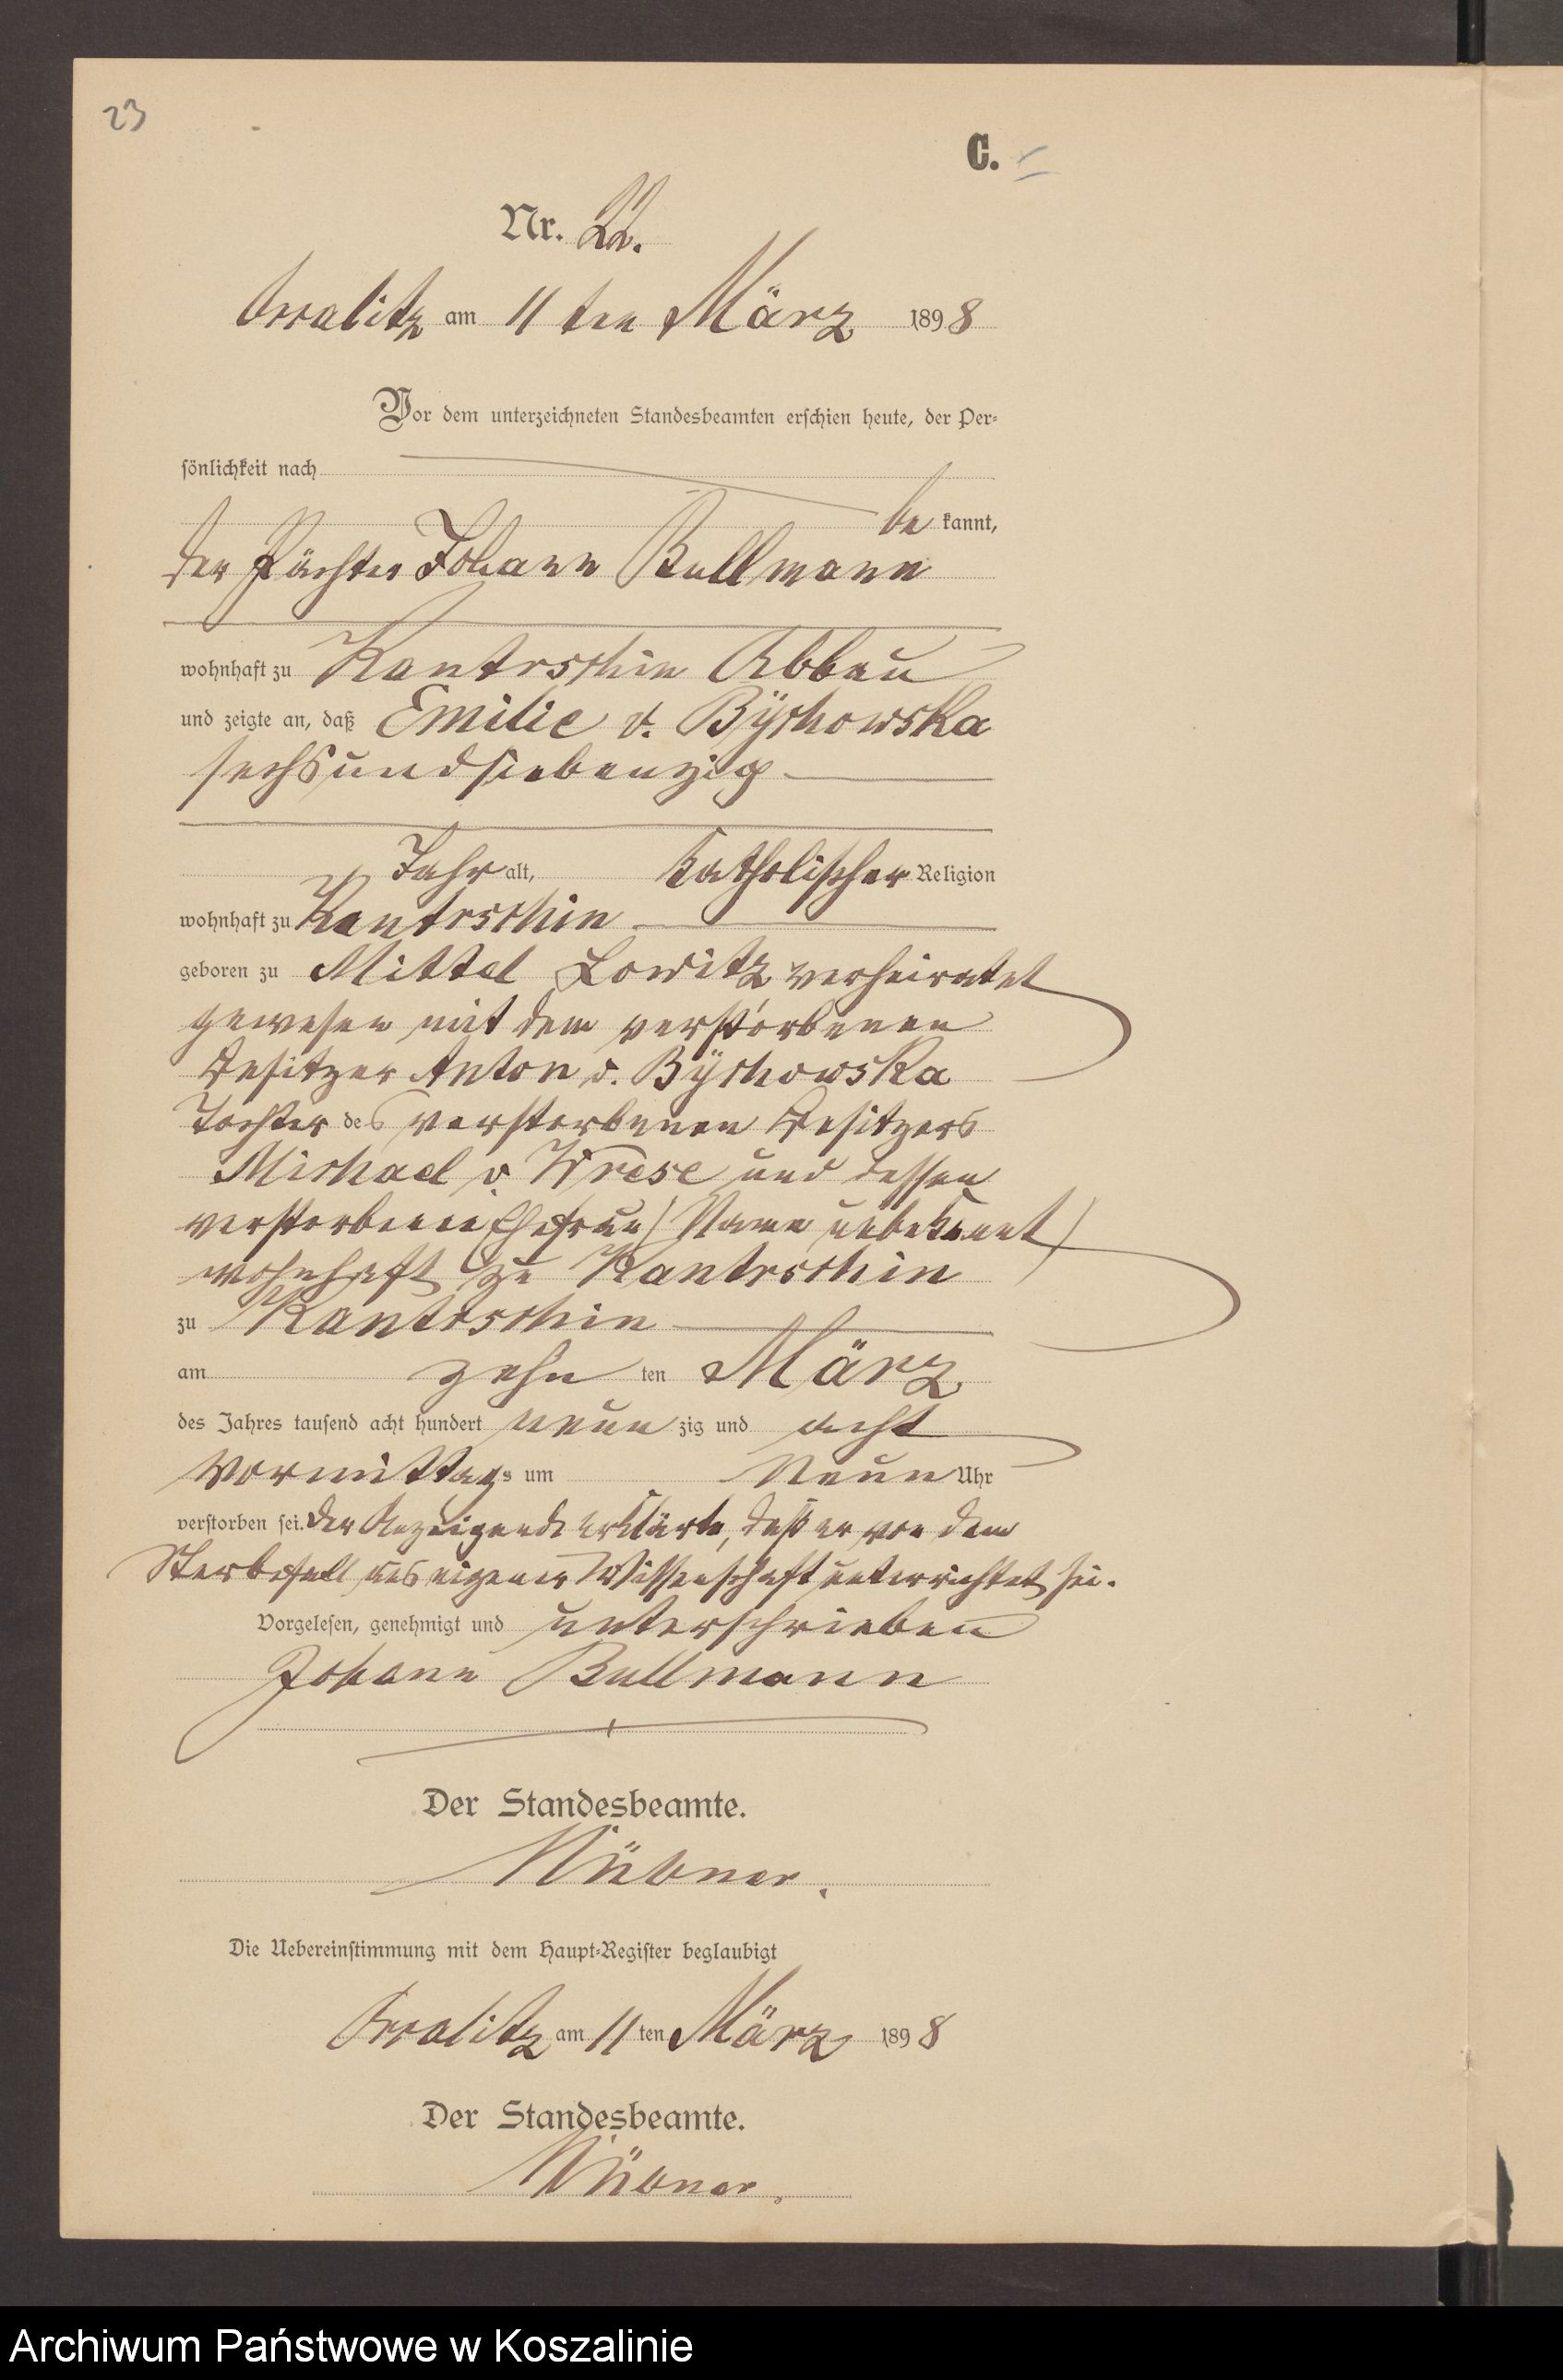 23
C.
Nr. 22.
am 11 ten März 1898
Vor dem unterzeichneten Standesbeamten erschien heute, der Per-
sönlichkeit nach
be kannt,
der Pächter Johann Bullmann
wohnhaft zu Kantrschin Abbau
und zeigte an, daß Emilie v. Bÿchowska
sechsundsiebenzig
Jahr alt, katholischer Religion
wohnhaft zu Kantrschin
geboren zu Mittel Lowitz verheiratet
gewesen mit dem verstorbenen
Besitzer Anton v. Bÿchowska
Tochter des verstorbenen Besitzers
Michael v. Wrese und dessen
verstorbenen Ehefrau (Name unbekannt)
wohnhaft zu Kantrschin
zu Kantrschin
am zehn ten März
des Jahres tausend acht hundert neun zig und acht
Vormittags um Neun Uhr
verstorben sei. Der Anzeigende erklärte, daß er von dem
Sterbefall aus eigener Wissenschaft unterrichtet sei.
Vorgelesen, genehmigt und unterschrieben
Johann Bullmann
Der Standesbeamte.
Die Uebereinstimmung mit dem Haupt-Register beglaubigt
am 11 ten März 1898
Der Standesbeamte.
Archiwum Państwowe w Koszalinie